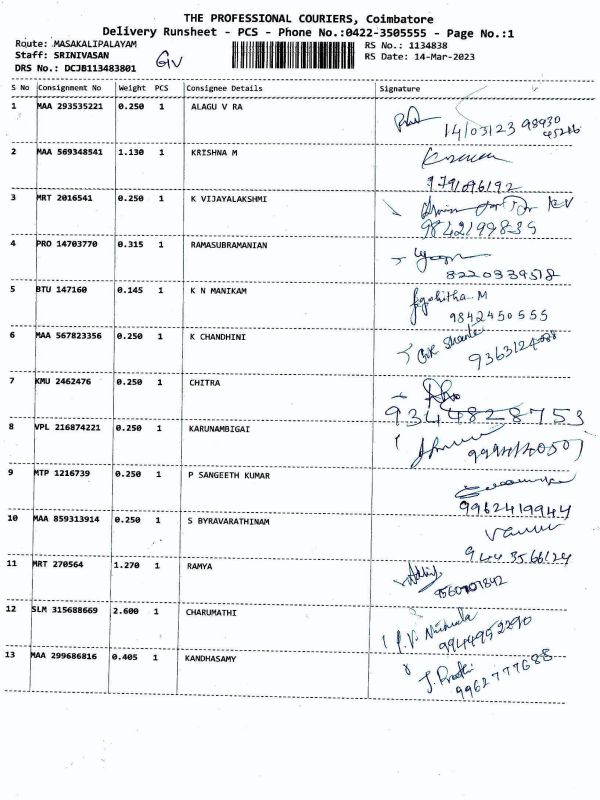 THE PROFESSIONAL COURIERS, Coimbatore
Delivery Runsheet - PCS - Phone No.:0422-3505555 - Page No.:1
Route: MASAKALIPALAYAM RS No.: 1134838
Staff: SRINIVASAN RS Date: 14-Mar-2023
DRS No.: DCJB113483801
S No Consignment No Weight PCS Consignee Details Signature
1 MAA 293535221 0.250 1 ALAGU V RA
14/03/23 98430
45216
2 MAA 569348541 1.130 1 KRISHNA M
9791096192
3 MRT 2016541 0.250 1 K VIJAYALAKSHMI
9842199839
4 PRO 14703770 0.315 1 RAMASUBRAMANIAN
8220339518
5 BTU 147160 0.145 1 K N MANIKAM
M
9842450555
6 MAA 567823356 0.250 1 K CHANDHINI
7 KMU 2462476 0.250 1 CHITRA
9344828753
8 VPL 216874221 0.250 1 KARUNAMBIGAI
9 MTP 1216739 0.250 1 P SANGEETH KUMAR
9962419944
10 MAA 859313914 0.250 1 S BYRAVARATHINAM
9443566124
11 MRT 270564 1.270 1 RAMYA
12 SLM 315688669 2.600 1 CHARUMATHI
9944952290
13 MAA 299686816 0.405 1 KANDHASAMY
9962777688